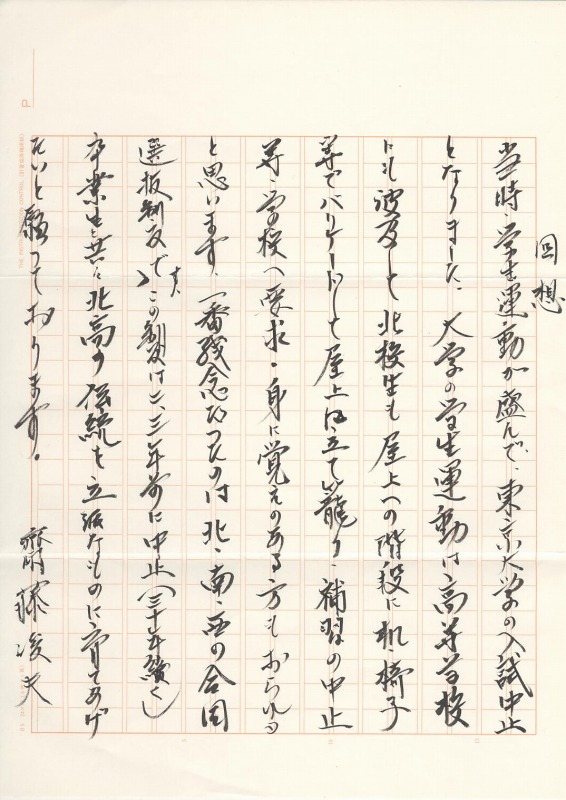 回想
当時、学生運動が盛んで、東京大学の入試中止
となりました。大学の学生運動は高等学校
にも波及して北校生も屋上への階段に机、椅子
等でバリケートして屋上に立て籠り、補習の中止
等、学校へ要求。身に覚えのある方もおられる
と思います。一番残念だったのは北、南、西の合同
選抜制度です。この制度は二、三年前に中止（三十年続く）
卒業生と共に北高の伝統を立派なものに育てあげ
たいと願っております。
齋藤俊夫
P